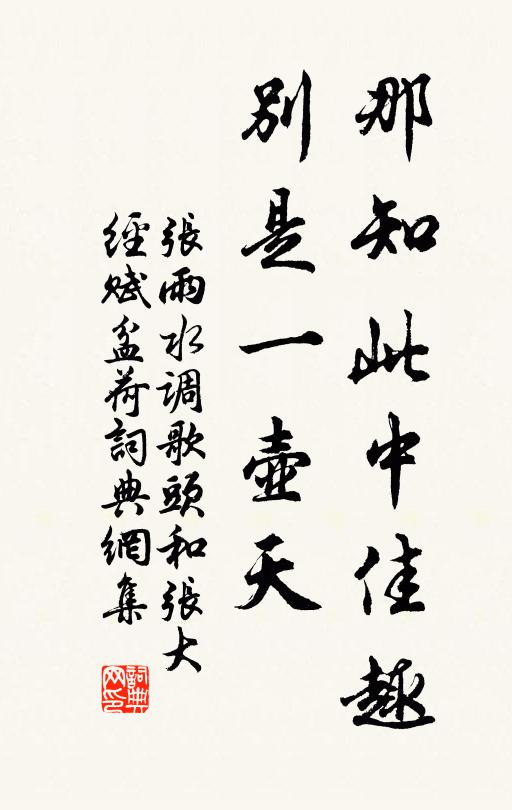 那知此中佳趣
別是一壺天
張雨水调歌頭和張大
經賦盆荷詞典網集
詞典網印